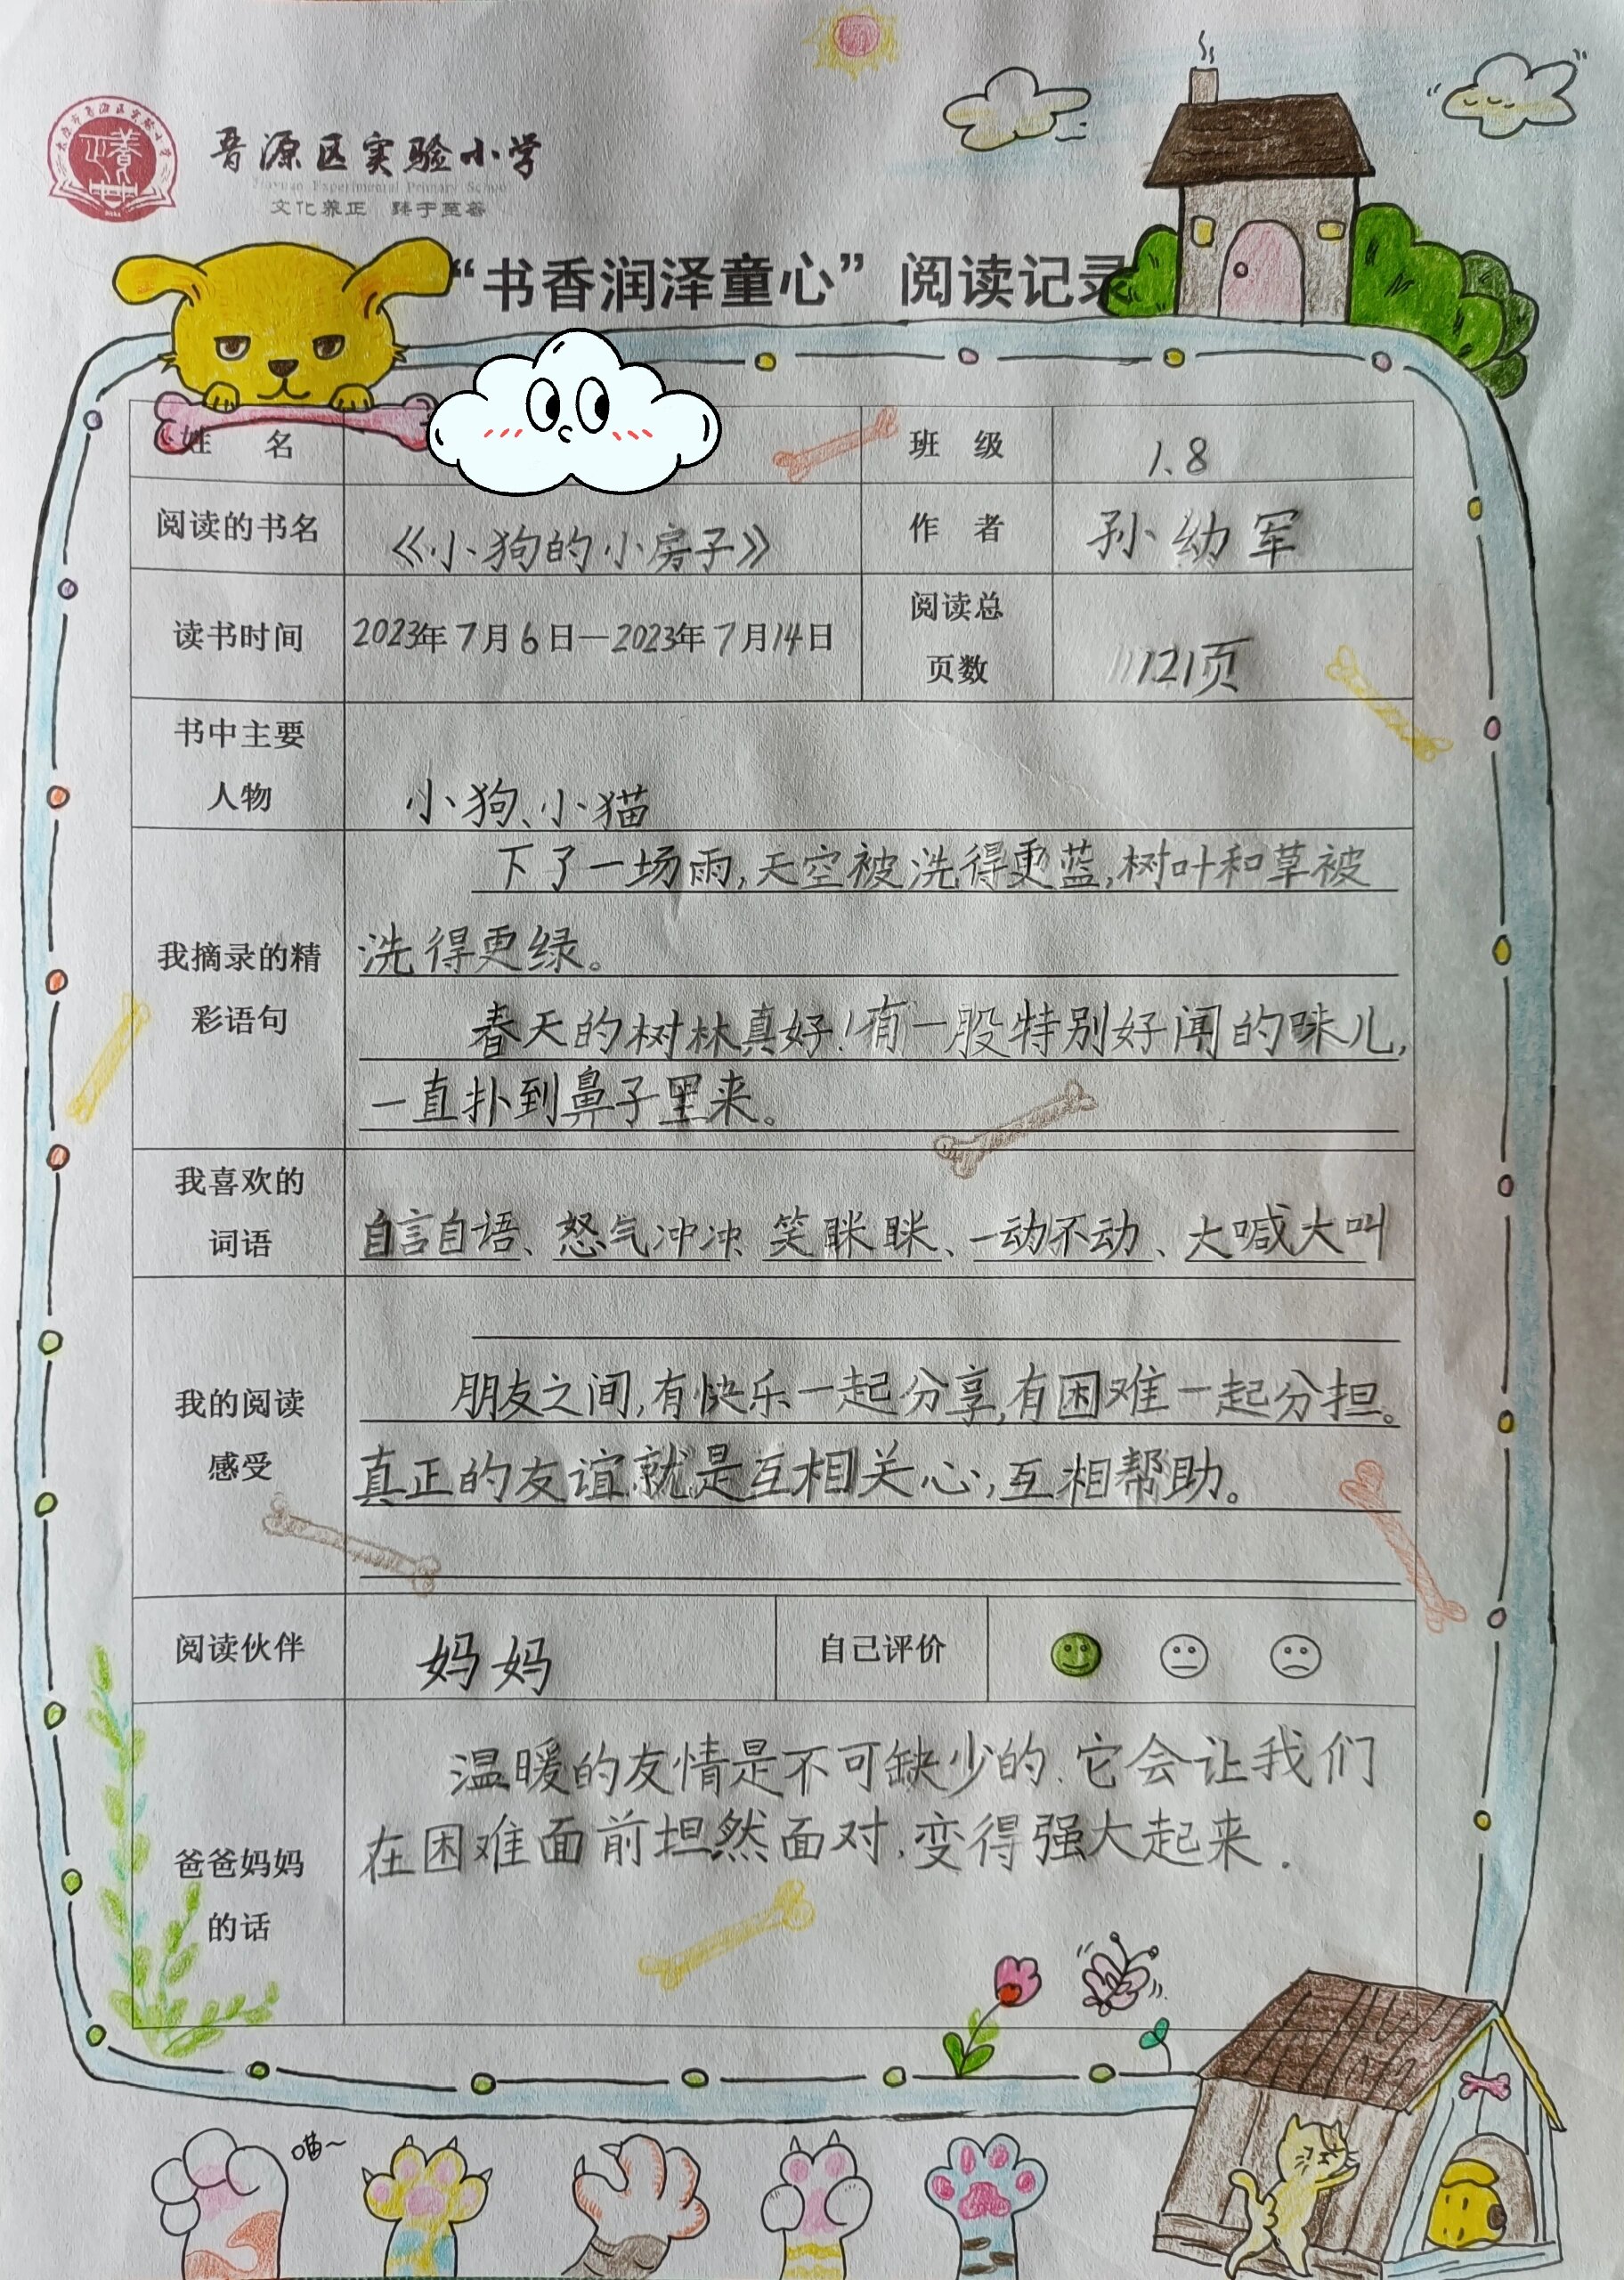 晋源区实验小学
Jinyuan Experimental Primary School
文化养正 臻于至善
“书香润泽童心”阅读记录
姓 名
班 级 1、8
阅读的书名 《小狗的小房子》 作 者 孙幼军
读书时间 2023年7月6日—2023年7月14日 阅读总页数 121页
书中主要人物 小狗、小猫
我摘录的精彩语句
下了一场雨,天空被洗得更蓝,树叶和草被
洗得更绿。
春天的树林真好!有一股特别好闻的味儿,
一直扑到鼻子里来。
我喜欢的词语
自言自语、怒气冲冲、笑眯眯、一动不动、大喊大叫
我的阅读感受
朋友之间,有快乐一起分享,有困难一起分担。
真正的友谊就是互相关心,互相帮助。
阅读伙伴 妈妈 自己评价
爸爸妈妈的话
温暖的友情是不可缺少的.它会让我们
在困难面前坦然面对,变得强大起来.
喵~